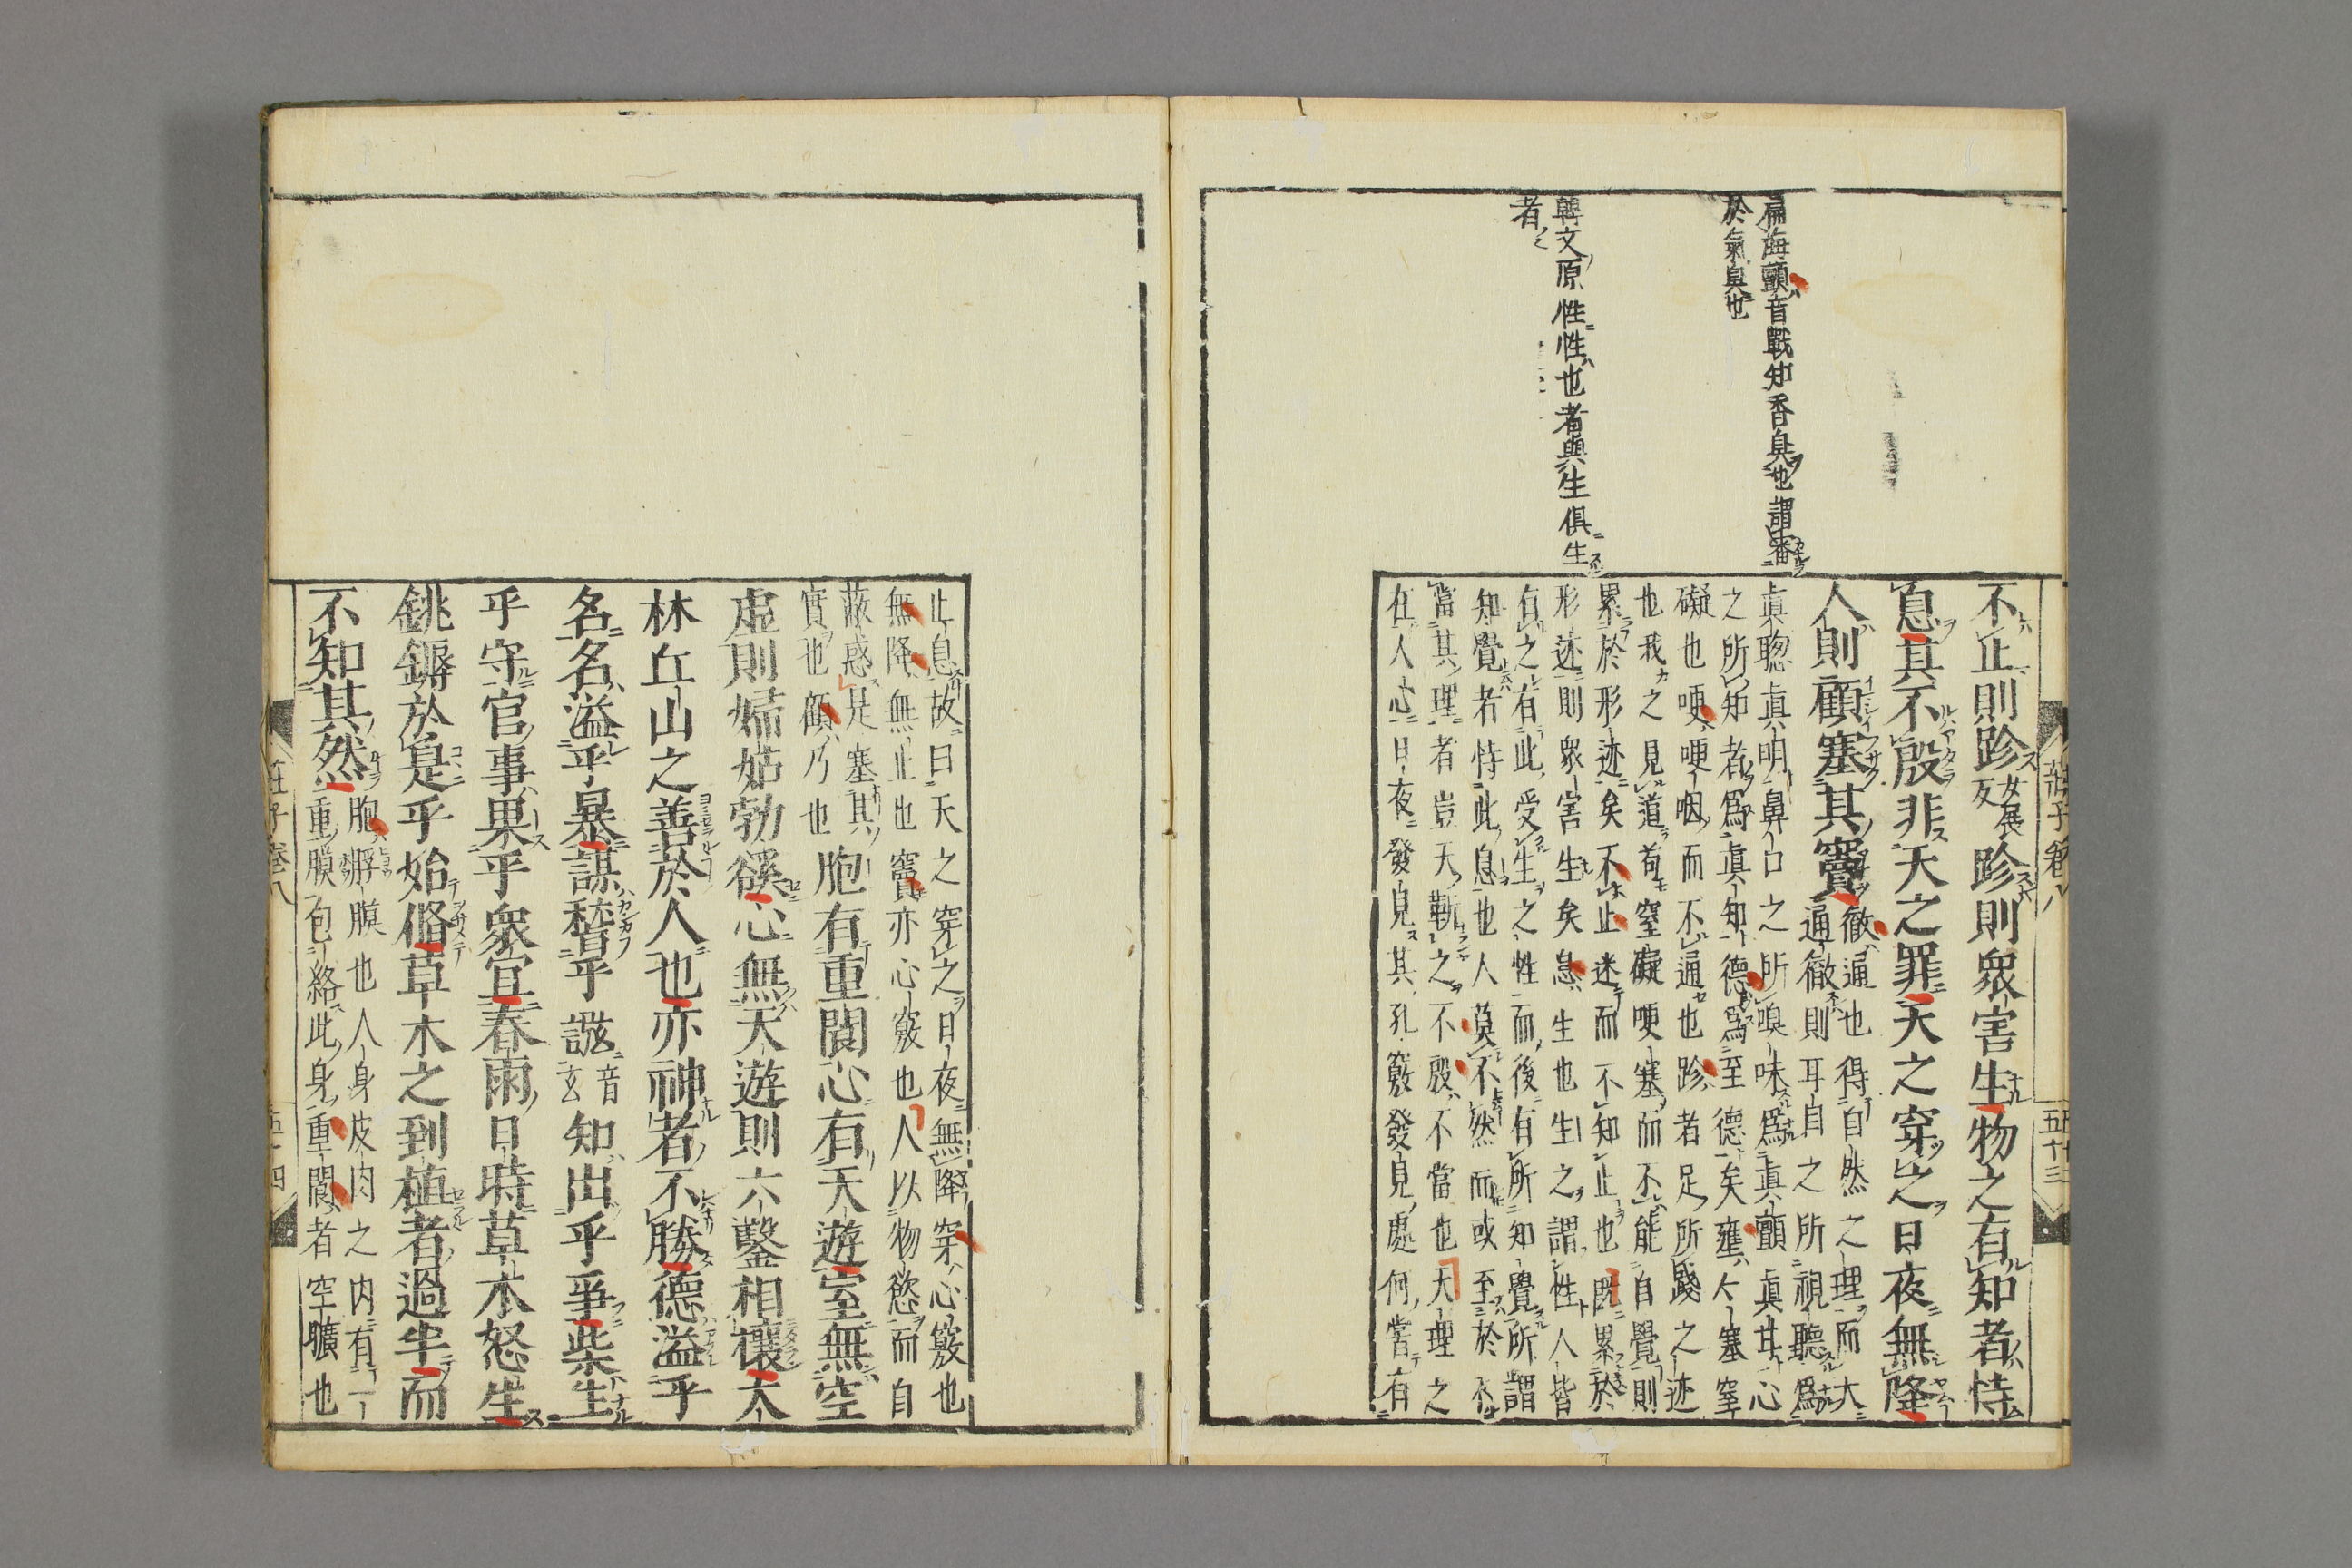 莊子卷八
五十三
篇海顫音戰知香臭也謂審
於氣臭也
韓文原性性也者與生俱生
者
不止則跈女展反跈則眾害生物之有知者恃
息其不殷非天之罪天之穿之日夜無降
人則顧塞其竇徹通也得自然之理而大
通徹則耳自之所視聽爲
眞聰眞明鼻口之所嗅味爲眞顫眞甘心
之所知者爲眞知德爲至德矣壅塞窒
礙也哽哽咽而不通也跈者足所踐之迹
也我之見道苟窒礙哽塞而不能自覺則
累於形迹矣不止迷而不知止也既累於
形迹則眾害生矣息生也生之謂性人皆
有之有此受生之性而後有所知覺所謂
知覺者恃此息也人莫不然而或至於不
當其理者豈天靳之不殷不當也天理之
在人心日夜發見其孔竅發見處何嘗有
止息故曰天之穿之日夜無降穿心竅也
無降無止也竇亦心竅也人以物慾而自
蔽惑是塞其
實也顧乃也
胞有重閬心有天遊室無空
虛則婦姑勃豀心無天遊則六鑿相攘大
林丘山之善於人也亦神者不勝德溢乎
名名溢乎暴謀稽乎誸音玄知出乎爭柴生
乎守官事果乎眾宜春雨日時草木怒生
銚鎒於是乎始脩草木之到植者過半而
不知其然胞脬膜也人身皮肉之内有一
重膜包絡此身重閬者空曠也
莊子卷八
五十四